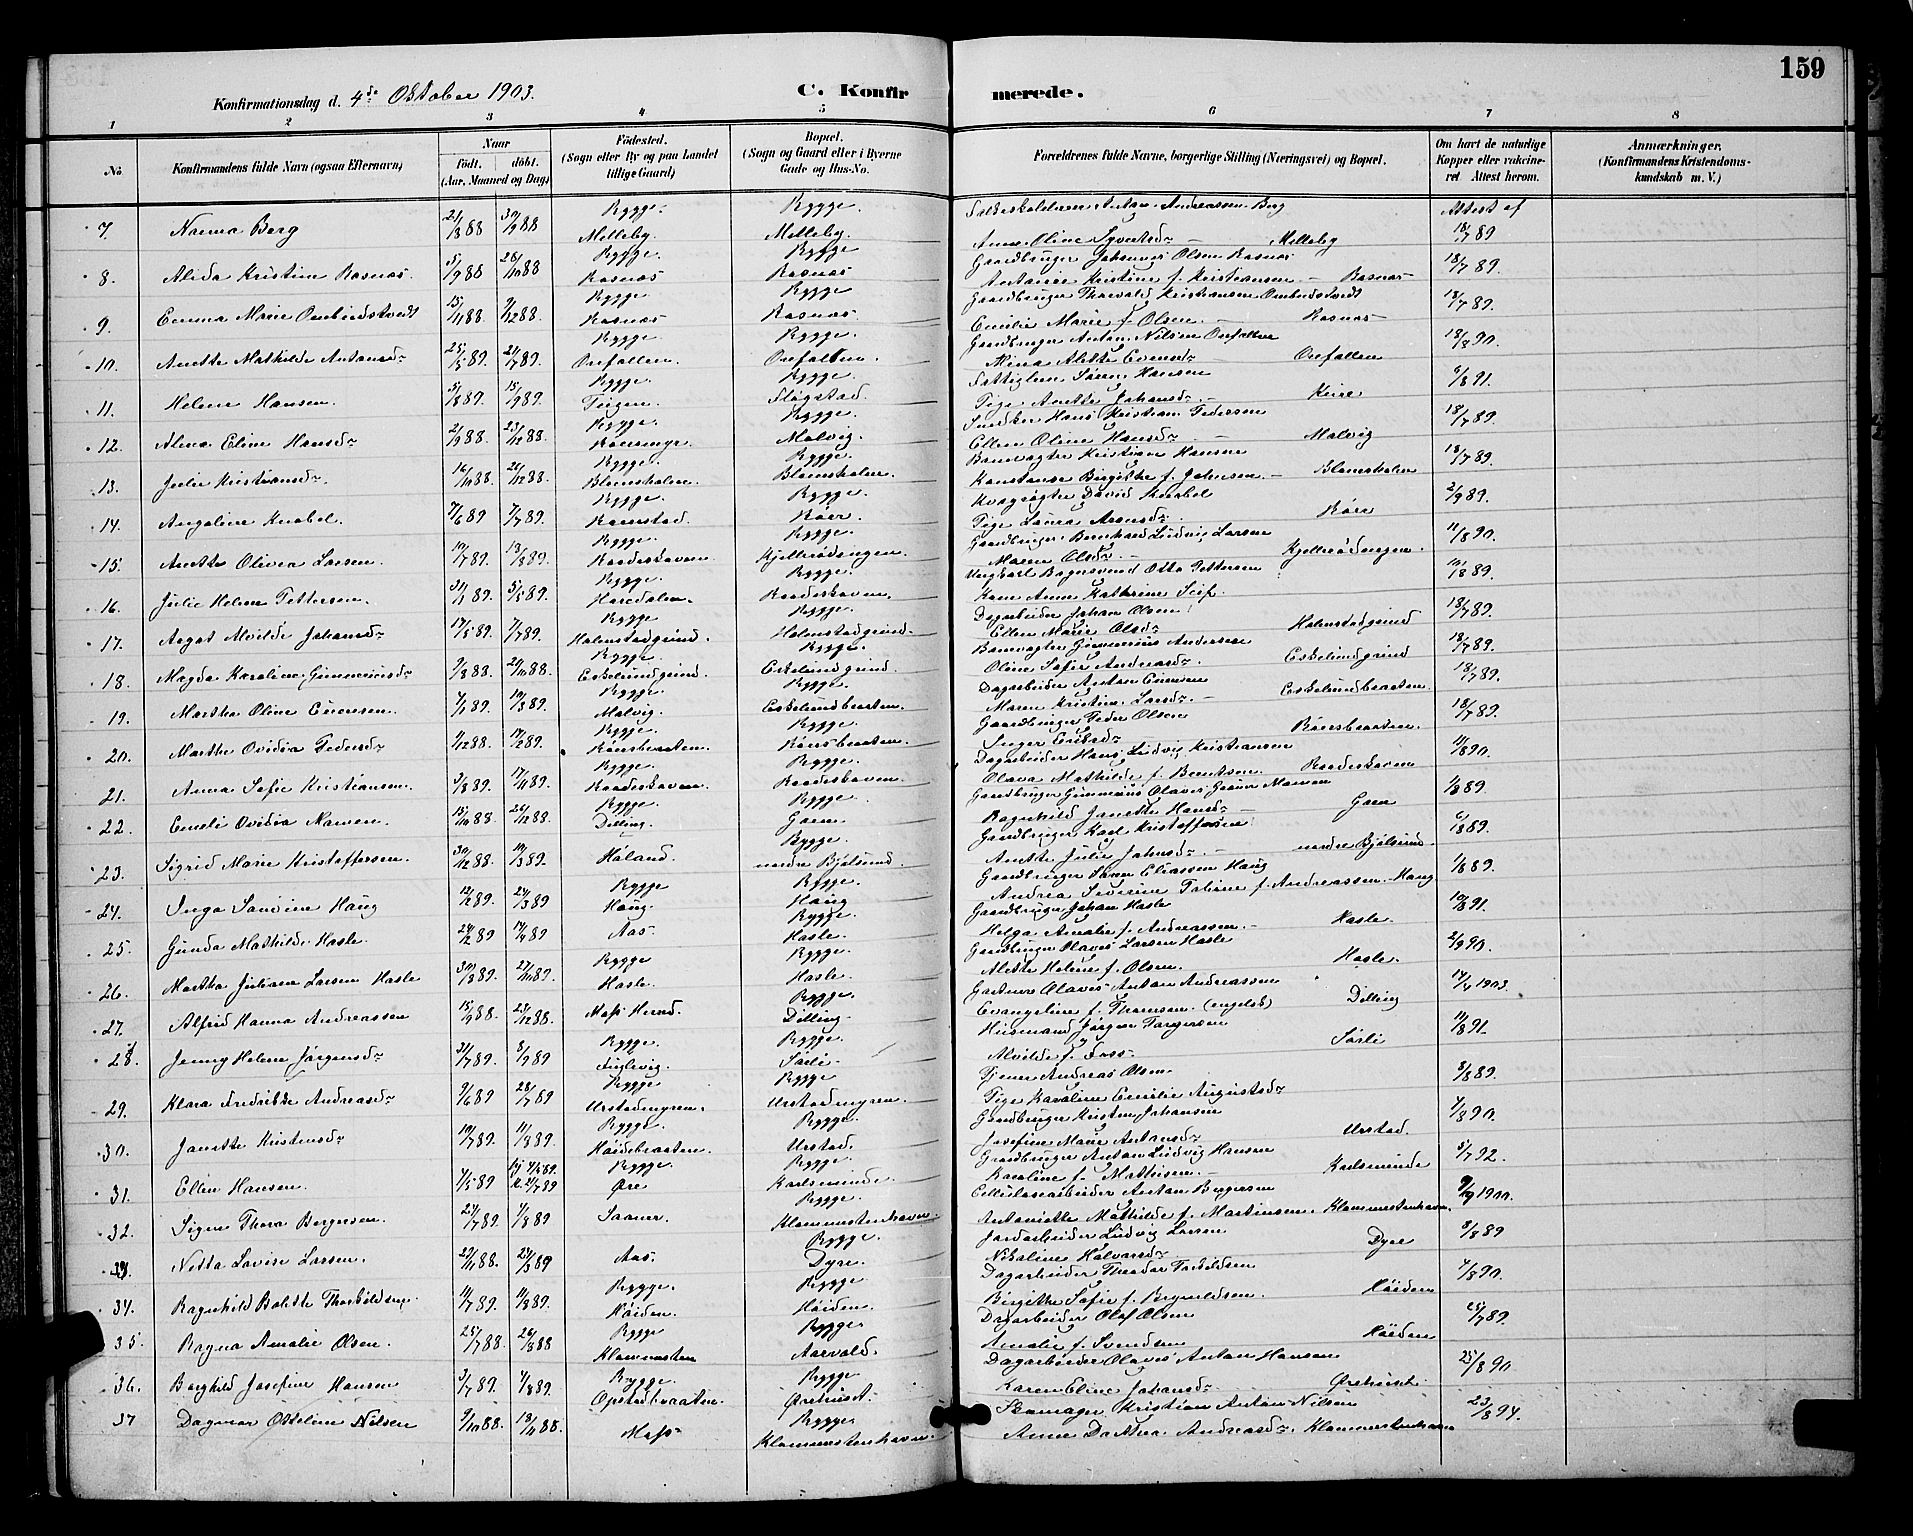 159
Konfirmationsdag d. 4de Oktober 1903. C. Konfirmerede.
1 2 3 4 5 6 7 8
No. Konfirmandens fulde Navn (ogsaa Efternavn) Naar født. døbt. (Aar, Maaned og Dag) Fødested. (Sogn eller By og paa Landet tillige Gaard) Bopæl. (Sogn og Gaard eller i Byerne Gade og Hus-No. Forældrenes fulde Navne, borgerlige Stilling (Næringsvei) og Bopæl. Om havt de naturlige Kopper eller vaccineret Attest herom. Anmærkninger. (Konfirmandens Kristendomskundskab m. V.)
Rygge Rygge Anton Andreassen Berg Attest af
7. Nanna Berg 21/8 88 30/9 88 Melleby. Melleby. Anne Oline Melleby 18/7 89
Rygge Rygge Gaardbruger Johannes Olsen Rosnæs
8. Alida Kristine Rosnæs 5/9 88 28/10 88 Rosnæs Rosnæs Kristine f. Kristiansen – Rosnæs 18/7 89.
Rygge Rygge Gaardbruger Thorvald Kristiansen Ombudstvedt
9. Emma Marie Ombudstvedt 15/11 88 9/12 88. Rosnæs Rosnæs Emilie Marie f. Olsen. – Rosnæs 18/7 89.
Rygge. Rygge. Gaardbruger Anton Nilsen Orefallen
10. Anette Mathilde Antonsdr 25/5 89 21/7 89. Orefallen. Orefallen. Mina Alette Orefallen 18/8 90.
Rygge. Rygge. Søren Hansen
11. Helene Hansen. 5/8 89. 15/9 89. Teigen. Fløgstad. Pige Anette Johansdr. – 6/8 91.
Rygge. Rygge Snedker Hans Kristian Pedersen
12. Alma Eline Hansdr 2/9 88. 23/12 88. Malvig. Ellen Oline Hansdr. – Malvig 18/7 89.
Rygge. Rygge. Banevogter Kristian Hansen
13. Julie Kristiansdr. 16/10 88. 26/12 88. Blomsholm. Blomsholm. Konstanse Birgitte f. Johnsen. – Blomsholm 18/7 89.
Rygge. Rygge David Knabel
14. Angeline Knabel. 7/6 89 7/7 89. Pige Laura 2/9 89.
Rygge. Rygge. Gaardbruger Bernhard Ludvig Larsen
15. Anette Olivia Larsen. 10/7 89. 18/8 89. Raadeskoven. Kjellerødengen. Maren Olsdr – Kjellerødengen. 11/8 90.
Rygge. Rygge. Otto Pettersen
16. Julie Helene Pettersen. 31/1 89. 5/5 89. Haredalen. Raadeskoven. Kone Anne Kathrine 10/8 89.
Rygge Rygge. Dagarbeider Johan Olsen
17. Aagot Alvilde Johansdr 17/5 89. 7/7 89. Halmstadgrind. Halmstadgrind. Ellen Marie Olsdr Halmstadgrind 18/7 89.
Rygge. Rygge. Banevogter Gunerius Andersen
18. Magda Karoline Guneriusdr 9/8 88. 21/10 88. Eskelundgrind. Eskelundgrind. Oline Sofie Andreasdr. Eskelundgrind 18/7 89.
Rygge Rygge. Dagarbeider Anton Eversen
19. Martha Oline Eversen. 7/1 89. 10/3 89. Malvig. Eskelundbraaten. Maren Kristine Larsdr. – Eskelundbraaten. 18/7 89.
Rygge. Rygge Gaardbruger Peder Olsen
20. Marthe Ovidia Pedersdr 9/12 88. 17/2 89. Rørsbraaten. Rørsbraaten. Inger Rørsbraaten. 18/7 89.
Rygge. Rygge. Dagarbeider Hans Ludvig Kristiansen
21. Anna Sofie Kristiansen. 3/3 89. 17/4 89. Raadeskoven. Raadeskoven. Olava Mathilde f. Berntsen. Raadeskoven 11/8 90.
Rygge. Rygge Gaardbruger Gunerius Olaves
22. Emeli Ovidia Nansen. 15/10 88. 26/12 88. Dilling. Garn. Ragnhild Janette Hansdr – Garn 1/8 89.
Rygge. Gaardbruger Karl Kristoffersen
23. Sigrid Marie Kristoffersen. 30/12 88. 10/3 89. Høland. nordre Bjølsund. Anette Julie Johnsdr. – nordre Bjølsund. 6/8 89.
Rygge Rygge. Gaardbruger Søren Eliassen Haug
24. Inga Sandine Haug 12/2 89. 24/3 89 Haug. Haug Andrea Severine Tobine f. Andreassen. Haug 1/8 89.
Rygge. Gaardbruger Johan Hasle
25. Gunda Mathilde Hasle. 24/2 89 14/4 89 Aas. Hasle. Helga Amalie f. Andreassen. – Hasle. 10/8 91.
Rygge Rygge. Gaardbruger Olaves Larsen Hasle
26. Martha Juliane Larsen Hasle 30/8 89. 27/10 89. Hasle. Hasle. Alette Helene f. Olsen. Hasle. 2/9 90.
Rygge. Gartner Olaves Anton Andreassen
27. Alfrid Hanna Andreassen 15/9 88. 23/12 88. Moss Herred. Dilling. Evangeline f. Thomsen. (engelsk) Dilling 14/4 1903.
Rygge. Rygge. Husmand Jørgen Torgersen
28. Jenny Helene Jørgensdr 31/7 89. 8/9 89 Fuglevig. Sørli. Alvilde f. Foss. Sørli 11/8 91.
Rygge Rygge Tjener Andreas Olsen.
29. Klara Fredrikke Andreasdr. 9/6 89 28/7 89 Urstadmyren. Urstadmyren. Pige Karoline Emilie Augustsdr 3/8 89.
Rygge. Rygge. Gaardbruger Kristen Johansen
30. Janette Kristensdr 10/7 89. 11/8 89. Høidebraaten. Urstad. Josefine Marie Antonsdr Urstad. 4/8 90.
Rygge. Rygge. Gaardbruger Anton Ludvig Hansen
31. Ellen Hansen. 4/5 89 21/7 89 Øre Karlsminde. Karoline f. Mathisen. – Karlsminde 5/7 92.
Rygge. Cellulosearbeider Anton Bergersen
32. Signe Thora Bergersen. 21/7 89. 4/8 89 Saaner. Klommestenhavn. Antonette Mathilde f. Martinsen. Klommestenhavn. 9/9 1900.
Rygge. Jordarbeider Ludvig Larsen
33. Netta Lovise Larsen. 29/11 88. 24/3 89 Aas. Dyre. Nikoline Halvorsdr. Dyre 8/8 89
Rygge. Rygge Dagarbeider Theodor Torkildsen
34. Ragnhild Bolette Thorkildsen. 11/7 89. 11/8 89. Høiden. Høiden. Birgitte Sofie f. Høiden 4/8 90.
Rygge Rygge Dagarbeider Olaf Olsen
35. Ragna Amalie Olsen. 25/7 88. 26/8 88 Klommesten Aarvold. Amalie f. Svendsen Høiden 25/7 89.
Rygge. Rygge Dagarbeider Olaves Anton Hansen
36. Borghild Josefine Hansen 3/7 89. 4/8 89. Opstadbraaten. Ørehuset. Karen Eline Johansdr. Ørehuset. 25/8 90.
Rygge Skomager Kristian Anton Nilsen
37 Dagmar Otteline Nilsen 9/10 88. 18/11 88. Moss Klommestenhavn. Anne Dorthea Andreasdr. Klommestenhavn 23/8 94.